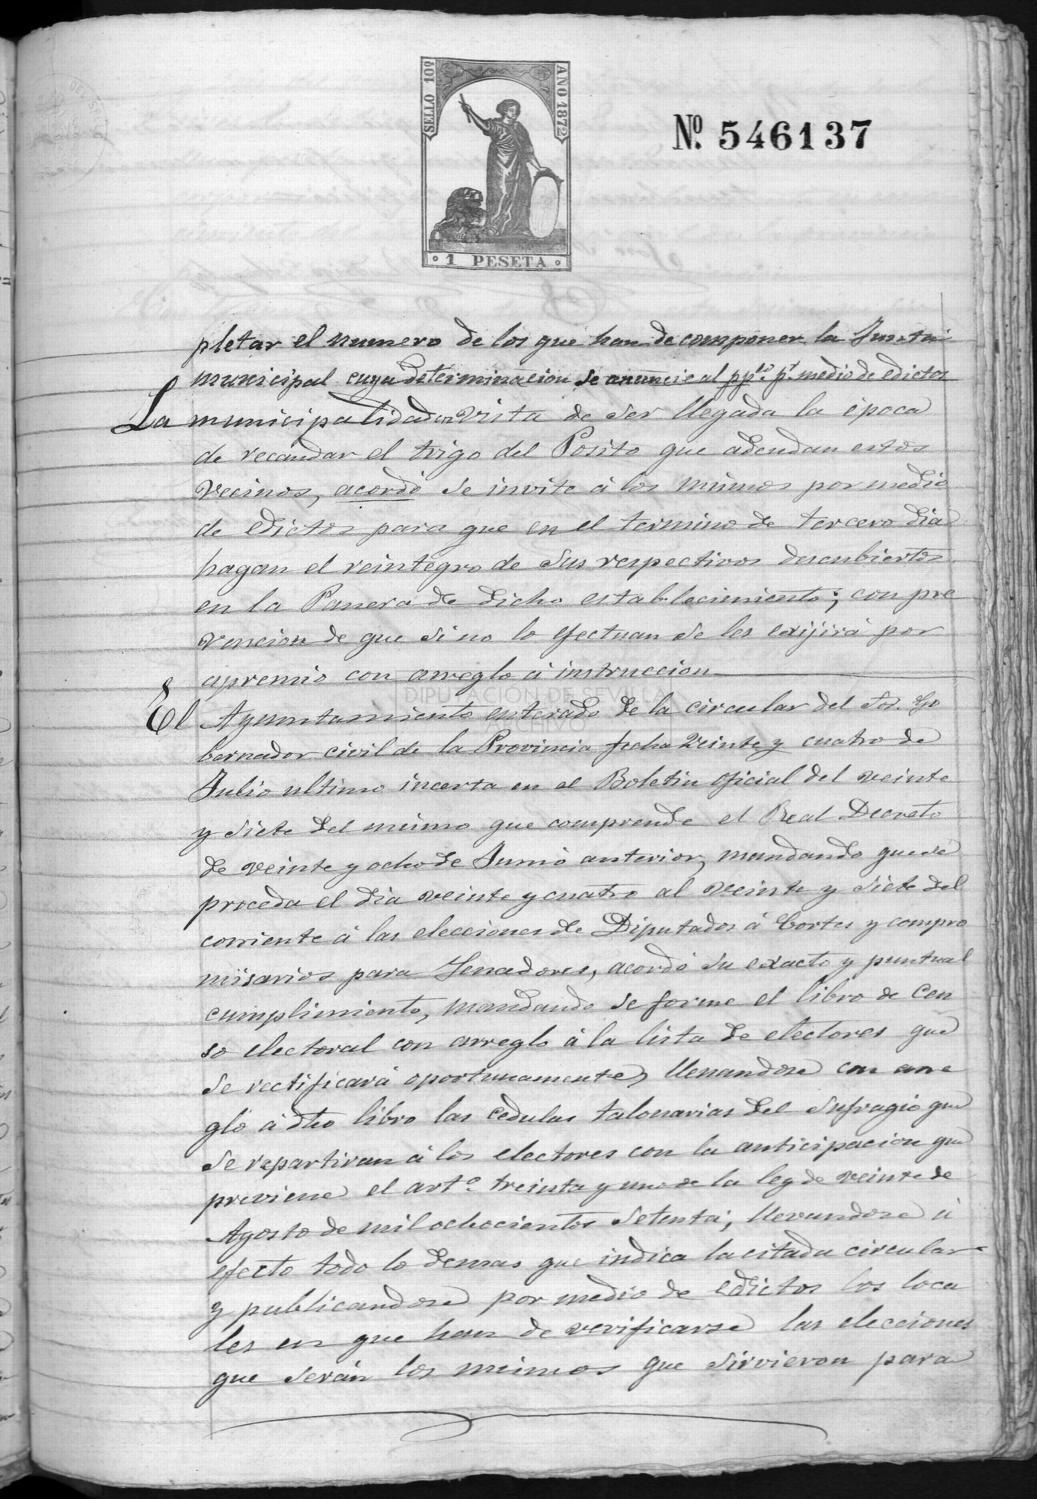 SELLO 10º
AÑO 1872
1 PESETA
Nº 546137
pletar el numero de los que han de componer la Junta
municipal cuya determinacion se anuncie al ppco pr medio de edictos
La municipalidad en vista de ser llegada la época
de recaudar el trigo del Posito que adeudan estos
vecinos, acordó se invite á los mismos por medio
de edictos para que en el termino de tercero dia
hagan el reintegro de sus respectivos descubiertos
en la Panera de dicho establecimiento; con pre
vencion de que si no lo efectuan se les exijirá por
apremio con arreglo á instruccion
DIPUTACIÓN DE SEVILLA
El Ayuntamiento enterado de la circular del Sor. Go
bernador civil de la Provincia fecha veinte y cuatro de
Julio ultimo incerta en el Boletin oficial del veinte
y siete del mismo que comprende el Real Decreto
de veinte y ocho de Junio anterior, mandando que se
proceda el dia veinte y cuatro al veinte y siete del
corriente á las elecciones de Diputados á Cortes y compro
misarios para Senadores, acordó su exacto y puntual
cumplimiento, mandando se forme el libro de cen
so electoral con arreglo á la lista de electores que
se rectificará oportunamente, llenandose con arre
glo á dho libro las cedulas talonarias del sufragio que
se repartiran á los electores con la anticipacion que
previene el arto. treinta y uno de la ley de veinte de
Agosto de mil ochocientos setenta; llevandose á
efecto todo lo demas que indica la citada circular
y publicandose por medio de edictos los loca
les en que han de verificarse las elecciones
que serán los mismos que sirvieron para